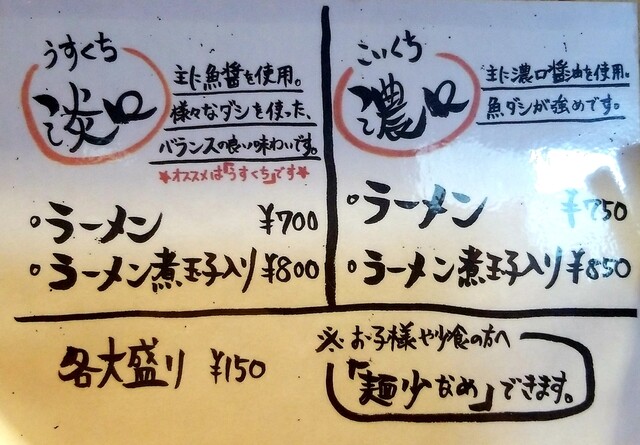 うすくち
淡口
主に魚醤を使用。
様々なダシを使った、
バランスの良い味わいです。
*オススメは「うすくち」です*
○ラーメン ¥700
○ラーメン煮玉子入り ¥800
こいくち
濃口
主に濃口醤油を使用。
魚ダシが強めです。
○ラーメン ¥750
○ラーメン煮玉子入り ¥850
各大盛り ¥150
※お子様や少食の方へ
「麺少なめ」できます。